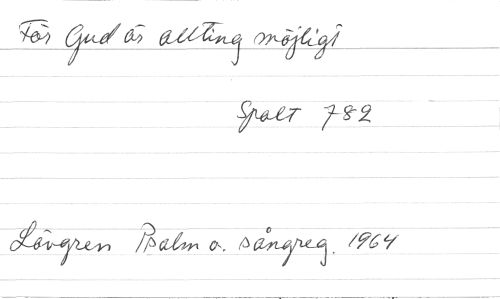 För Gud är allting möjligt
Spalt 782
Lövgren Psalm o. sångreg. 1964